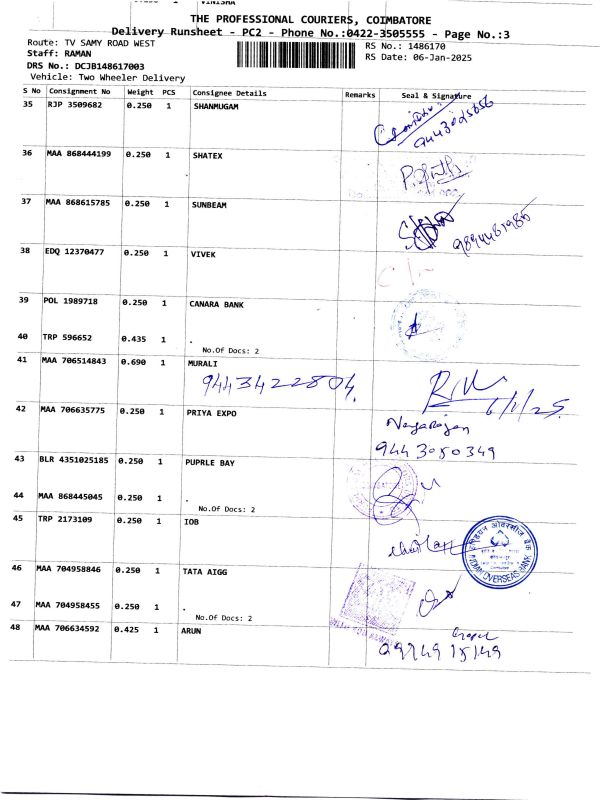 VINISHA
THE PROFESSIONAL COURIERS, COIMBATORE
Delivery Runsheet - PC2 - Phone No.:0422-3505555 - Page No.:3
Route: TV SAMY ROAD WEST
RS No.: 1486170
Staff: RAMAN
RS Date: 06-Jan-2025
DRS No.: DCJB148617003
Vehicle: Two Wheeler Delivery
S No Consignment No Weight PCS Consignee Details Remarks Seal & Signature
35 RJP 3509682 0.250 1 SHANMUGAM
9443025656
36 MAA 868444199 0.250 1 SHATEX
37 MAA 868615785 0.250 1 SUNBEAM
38 EDQ 12370477 0.250 1 VIVEK
39 POL 1989718 0.250 1 CANARA BANK
40 TRP 596652 0.435 1 .
No.Of Docs: 2
41 MAA 706514843 0.690 1 MURALI
9443422804.
6/1/25.
42 MAA 706635775 0.250 1 PRIYA EXPO
Nagarajan
9443050349
43 BLR 4351025185 0.250 1 PUPRLE BAY
44 MAA 868445045 0.250 1 .
No.Of Docs: 2
45 TRP 2173109 0.250 1 IOB
इण्डियन ओवरसीज़ बैंक
INDIAN OVERSEAS BANK
46 MAA 704958846 0.250 1 TATA AIGG
47 MAA 704958455 0.250 1 .
No.Of Docs: 2
48 MAA 706634592 0.425 1 ARUN